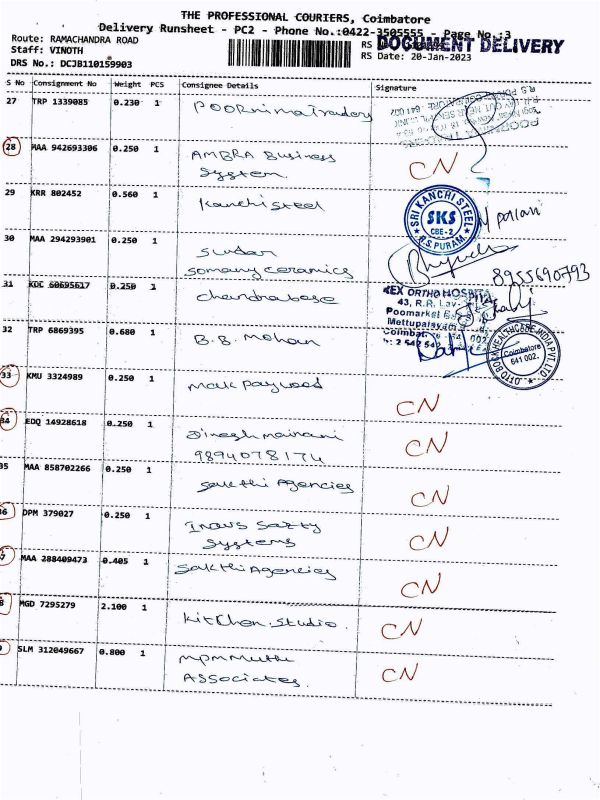 THE PROFESSIONAL COURIERS, Coimbatore
Delivery Runsheet - PC2 - Phone No.:0422-3505555 - Page No.:3
Route: RAMACHANDRA ROAD
RS
DOCUMENT DELIVERY
Staff: VINOTH
RS Date: 20-Jan-2023
DRS No.: DCJB110159903
S No Consignment No Weight PCS Consignee Details Signature
27 TRP 1339085 0.230 1 Poornima Traders
28 MAA 942693306 0.250 1 AMBRA Business
System
CN
29 KRR 802452 0.560 1 Kanchi steel
SRI KANCHI STEEL
SKS
CBE-2
R.S. PURAM
30 MAA 294293901 0.250 1 Sudar
somany ceramics
8955690793
31 KDC 60695617 0.250 1 Chandra bose
REX ORTHO HOSPITAL
43, R.R. Lay
Poomarket
Mettupalayam
Coimbatore 002
32 TRP 6869395 0.680 1 B.B. Mohan
OTTO BOCK HEALTHCARE INDIA PVT. LTD
Coimbatore
641 002.
33 KMU 3324989 0.250 1
CN
34 EDQ 14928618 0.250 1
9894078174
CN
35 MAA 858702266 0.250 1 Sakthi Agencies
CN
36 DPM 379027 0.250 1
Systems
CN
7 MAA 288409473 0.405 1 Sakthi Agencies
CN
8 MGD 7295279 2.100 1 Kitchen Studio.
CN
9 SLM 312049667 0.800 1
Associates.
CN